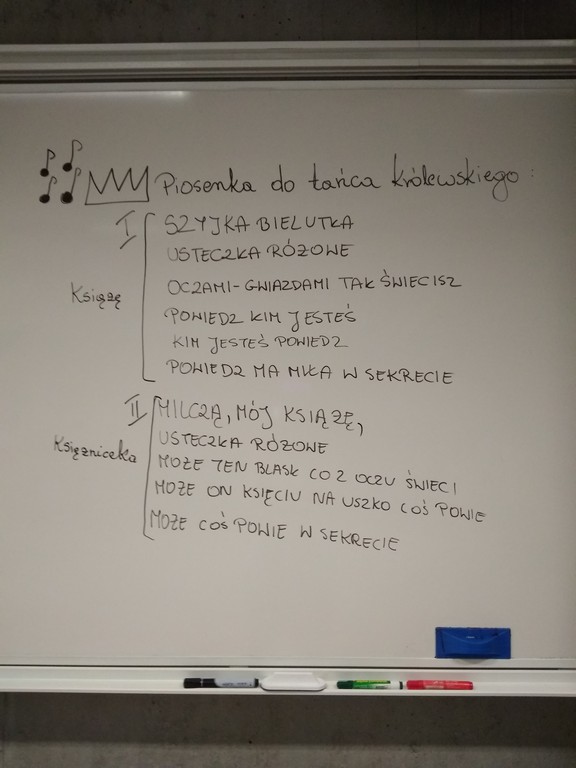 Piosenka do tańca królewskiego:
I
SZYJKA BIELUTKA
USTECZKA RÓŻOWE
OCZAMI-GWIAZDAMI TAK ŚWIECISZ
Książę
POWIEDZ KIM JESTEŚ
KIM JESTEŚ POWIEDZ
POWIEDZ MA MIŁA W SEKRECIE
II
MILCZĄ, MÓJ KSIĄŻĘ,
USTECZKA RÓŻOWE
Księżniczka
MOŻE TEN BLASK CO Z OCZU ŚWIECI
MOŻE ON KSIĘCIU NA USZKO COŚ POWIE
MOŻE COŚ POWIE W SEKRECIE